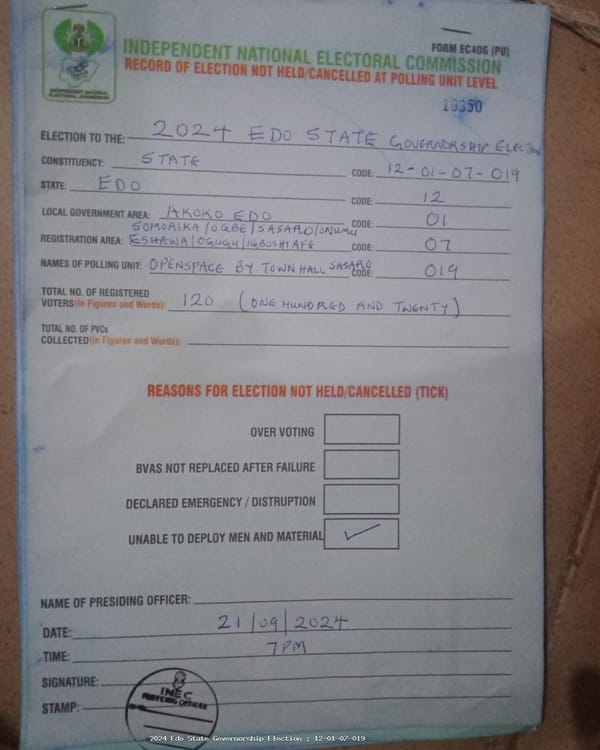 FORM EC40G (PU)
INDEPENDENT NATIONAL ELECTORAL COMMISSION
RECORD OF ELECTION NOT HELD/CANCELLED AT POLLING UNIT LEVEL
INDEPENDENT NATIONAL ELECTORAL COMMISSION
ELECTION TO THE: 2024 EDO STATE GOVERNORSHIP ELECTION
CONSTITUENCY: STATE CODE: 12-01-07-019
STATE: EDO CODE: 12
LOCAL GOVERNMENT AREA: AKOKO EDO CODE: 01
SOMORIKA/OGBE/SASARO/ONUMU
REGISTRATION AREA: ESHAWA/OGUGU/IGBOSHI AFE CODE: 07
NAMES OF POLLING UNIT: OPENSPACE BY TOWN HALL SASARO CODE: 019
TOTAL NO. OF REGISTERED
VOTERS(in Figures and Words): 120 (ONE HUNDRED AND TWENTY)
TOTAL NO. OF PVCs
COLLECTED(in Figures and Words):
REASONS FOR ELECTION NOT HELD/CANCELLED (TICK)
OVER VOTING
BVAS NOT REPLACED AFTER FAILURE
DECLARED EMERGENCY / DISTRUPTION
UNABLE TO DEPLOY MEN AND MATERIAL
NAME OF PRESIDING OFFICER:
DATE: 21/09/2024
TIME: 7PM
SIGNATURE:
STAMP:
INEC
PRESIDING OFFICER
2024 Edo State Governorship Election : 12-01-07-019